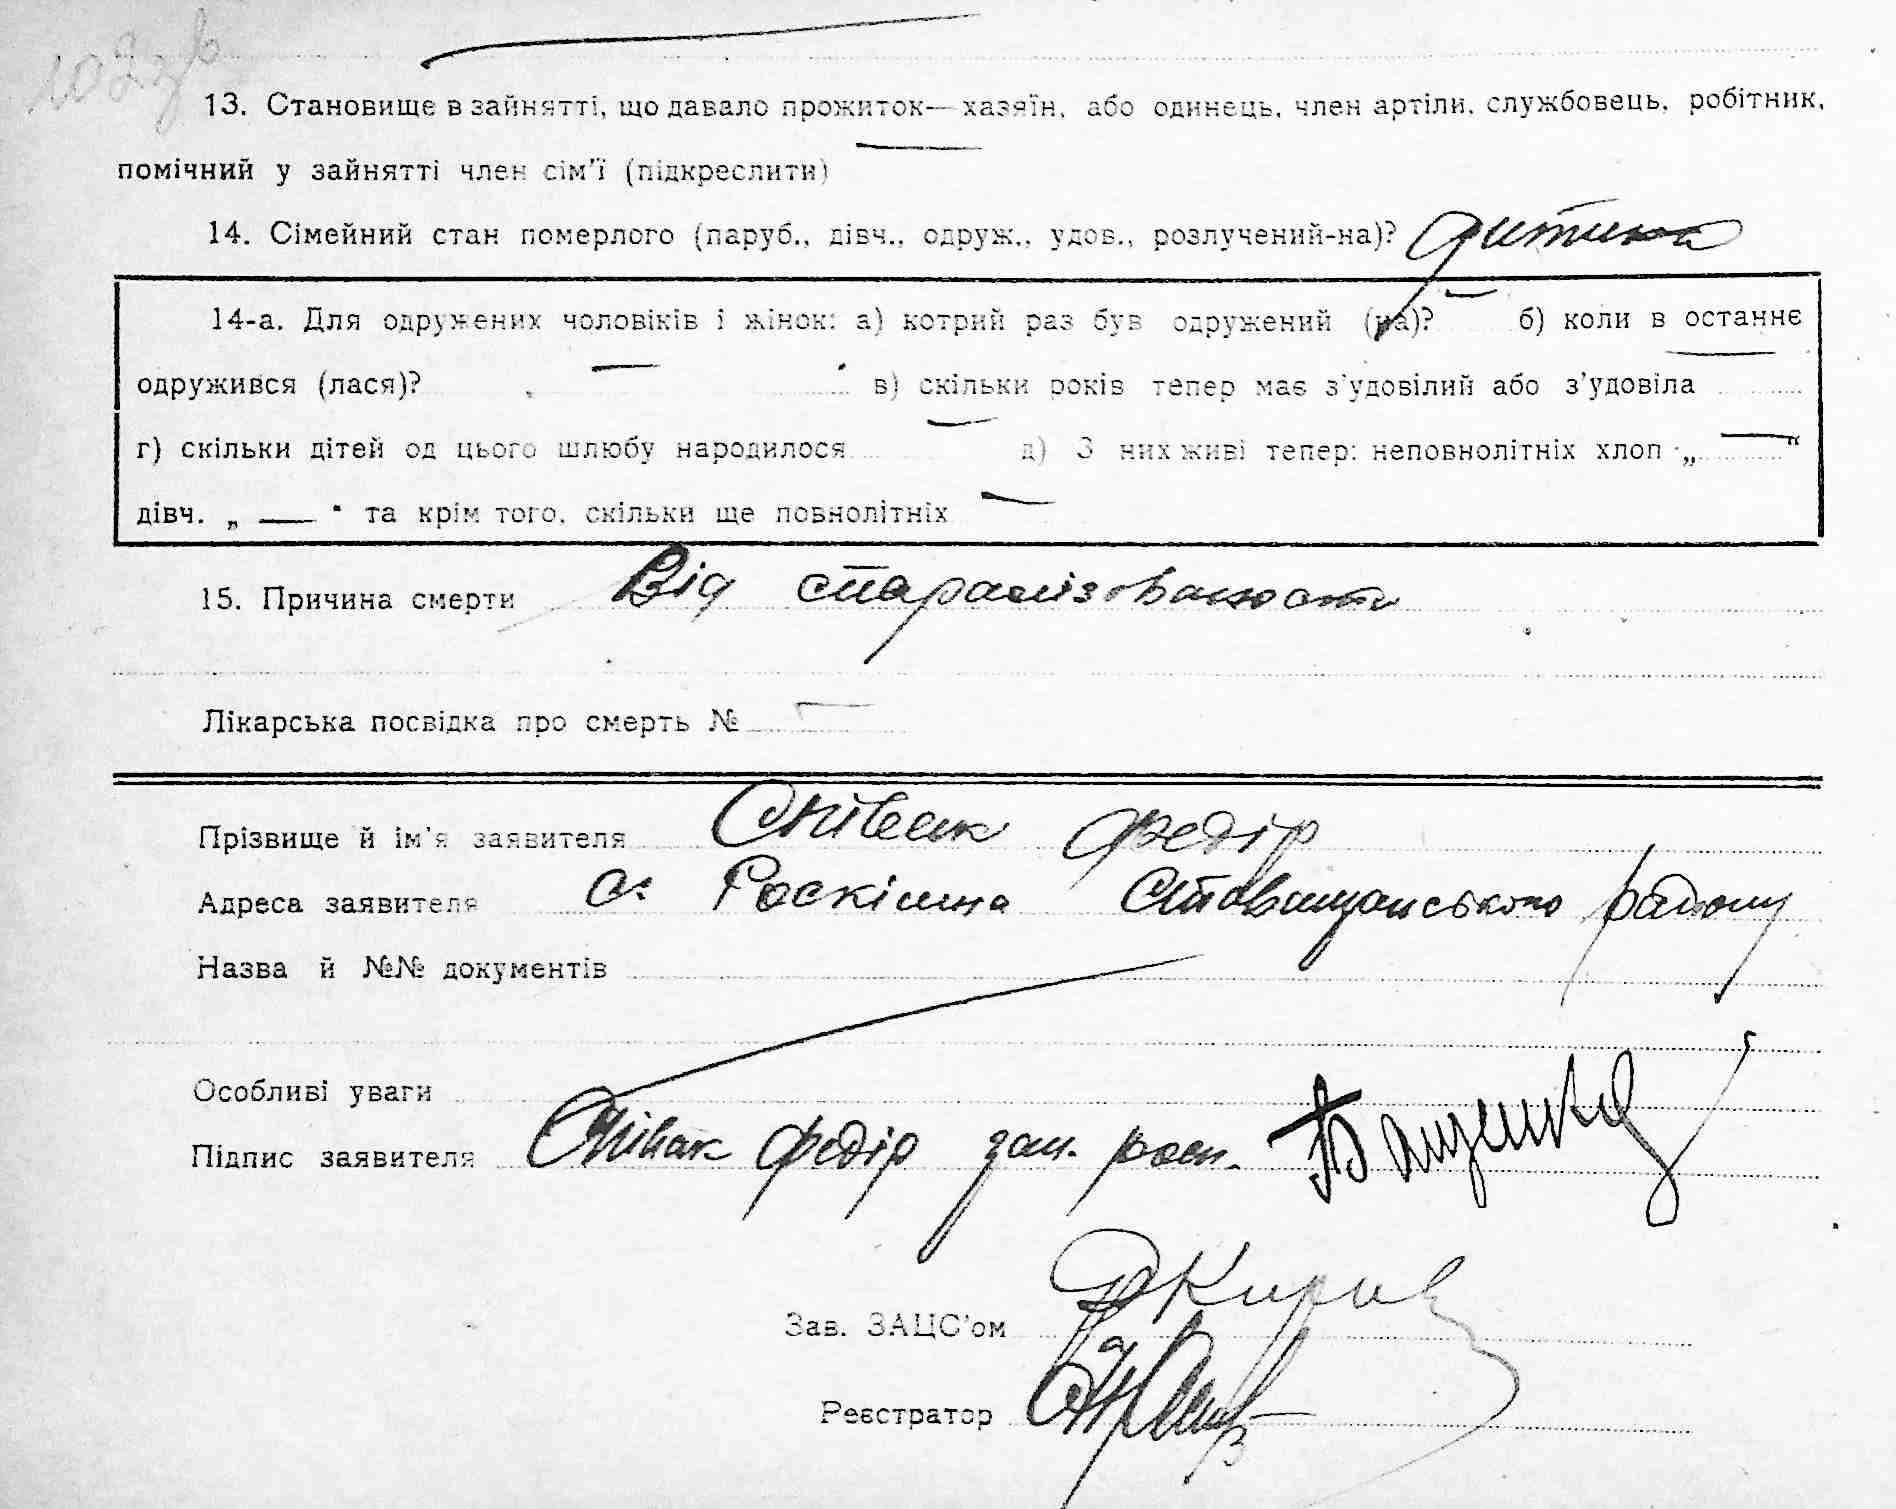 102 зв
13. Становище в зайнятті, що давало прожиток—хазяїн, або одинець, член артіли, службовець, робітник,
помічний у зайнятті член сім'ї (підкреслити)
14. Сімейний стан померлого (паруб., дівч., одруж., удов., розлучений-на)? дитина
14-а. Для одружених чоловіків і жінок: а) котрий раз був одружений (на)? — б) коли в останнє
одружився (лася)? — в) скільки років тепер має з'удовілий або з'удовіла —
г) скільки дітей од цього шлюбу народилося — д) З них живі тепер: неповнолітніх хлоп. „—“
дівч. „—“ та крім того, скільки ще повнолітніх —
15. Причина смерти Від спаралізованости
Лікарська посвідка про смерть № —
Прізвище й ім'я заявителя Співак Федір
Адреса заявителя с. Роскішна Ставищанського району
Назва й №№ документів
Особливі уваги
Підпис заявителя Співак Федір за росп. Бащенко
Зав. ЗАЦС'ом
Реєстратор